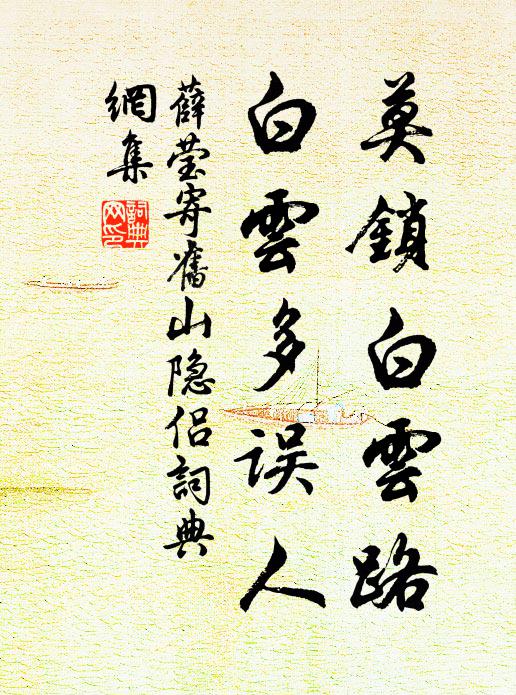 莫鎖白雲路
白雲多误人
薛莹寄舊山隐侣詞典
網集
詞典网印